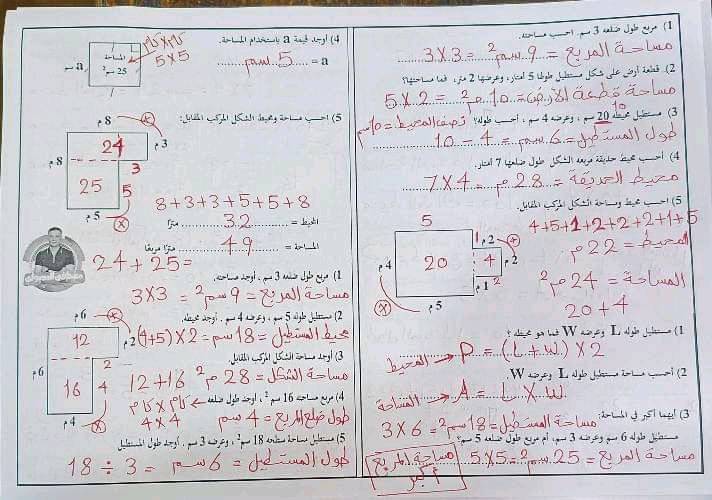 1) مربع طول ضلعه 3 سم. احسب مساحته.
مساحة المربع = 9 سم² = 3×3
2) قطعة أرض على شكل مستطيل طولها 5 أمتار، وعرضها 2 متر، فما مساحتها؟
مساحة قطعة الأرض = 10 م² = 5 × 2
3) مستطيل محيطه 20 سم ، وعرضه 4 سم ، أحسب طوله؟ نصف المحيط = 10 سم
10
طول المستطيل = 6 سم = 10 - 4
4) احسب محيط حديقة مربعة الشكل طول ضلعها 7 أمتار.
محيط الحديقة = 28 م = 7×4
5) احسب محيط ومساحة الشكل المركب المقابل.
4+5+1+2+2+2+1+5
المحيط = 22 م
المساحة = 24 م²
20+4
5
1
2 م
20
4
2 م
4 م
1 م
2
5 م
1) مستطيل طوله L وعرضه W فما هو محيطه ؟
المحيط ← P = (L + W) × 2
2) احسب مساحة مستطيل طوله L وعرضه W.
المساحة ← A = L × W
3) أيهما أكبر في المساحة:
مساحة المستطيل = 18 سم² = 3 × 6
مستطيل طوله 6 سم وعرضه 3 سم، أم مربع طول ضلعه 5 سم؟
مساحة المربع = 25 سم² = 5×5
مساحة المربع أكبر
4) أوجد قيمة a باستخدام المساحة.
5×5
a = 5 سم
المساحة
25 سم²
a سم
5) احسب مساحة ومحيط الشكل المركب المقابل:
8 م
24
3 م
8 م
3
25
5
5 م
8+3+3+5+5+8
المحيط = 32 مترًا
المساحة = 49 مترًا مربعًا
24+25=
1) مربع طول ضلعه 3 سم ، أوجد مساحته.
مساحة المربع = 9 سم² = 3×3
2) مستطيل طوله 5 سم ، وعرضه 4 سم ، أوجد محيطه.
محيط المستطيل = 18 سم = 2×(4+5)
3) أوجد مساحة الشكل المركب المقابل.
مساحة الشكل = 28 م² 12+16
6 م
12
2 م
6 م
2
16
4
4 م
4) مربع مساحته 16 سم² ، أوجد طول ضلعه
طول ضلع المربع = 4 سم 4×4
5) مستطيل مساحة سطحه 18 سم²، وعرضه 3 سم، أوجد طول المستطيل
طول المستطيل = 6 سم = 18 ÷ 3